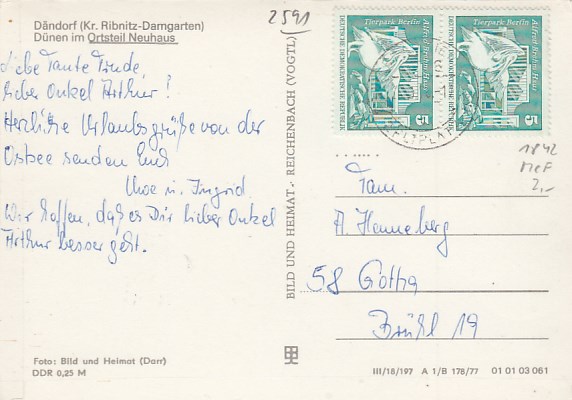 2591
Dändorf (Kr. Ribnitz-Damgarten)
Dünen im Ortsteil Neuhaus
Liebe Tante Trude,
Lieber Onkel Arthur!
Herzliche Urlaubsgrüße von der
Ostsee senden Euch
Uwe u. Ingrid.
Wir hoffen, daß es Dir lieber Onkel
Arthur besser geht.
Foto: Bild und Heimat (Darr)
DDR 0,25 M
BILD UND HEIMAT · REICHENBACH (VOGTL)
Tierpark Berlin
Alfred-Brehm-Haus
DEUTSCHE DEMOKRATISCHE REPUBLIK
5
Tierpark Berlin
Alfred-Brehm-Haus
DEUTSCHE DEMOKRATISCHE REPUBLIK
5
ZELTPLATZ
1842
MeF
2,-
Fam.
A. Henneberg
58 Gotha
Brühl 19
III/18/197 A 1/B 178/77 01 01 03 061